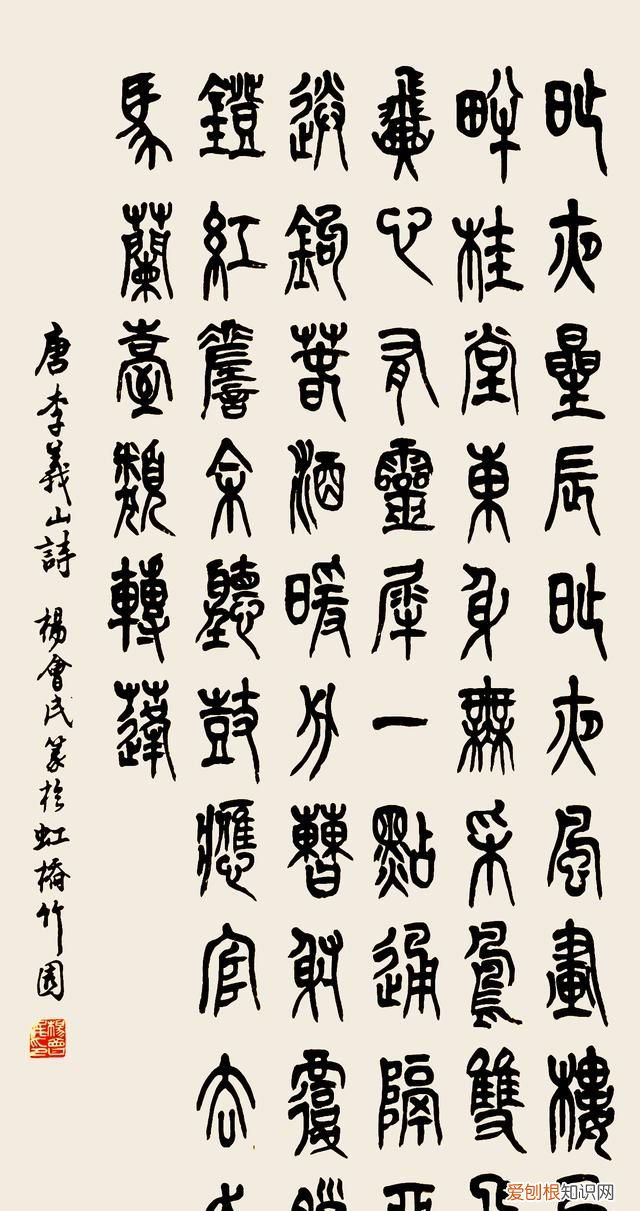 昨夜星辰昨夜風畫樓
畔桂堂東身無采鳳雙
翼心有靈犀一點通隔
送鉤春酒暖分曹射覆
鐙紅嗟余聽鼓應官去
馬蘭臺類轉蓬
唐李義山詩 楊會民篆於虹橋竹園
爱刨根知识网